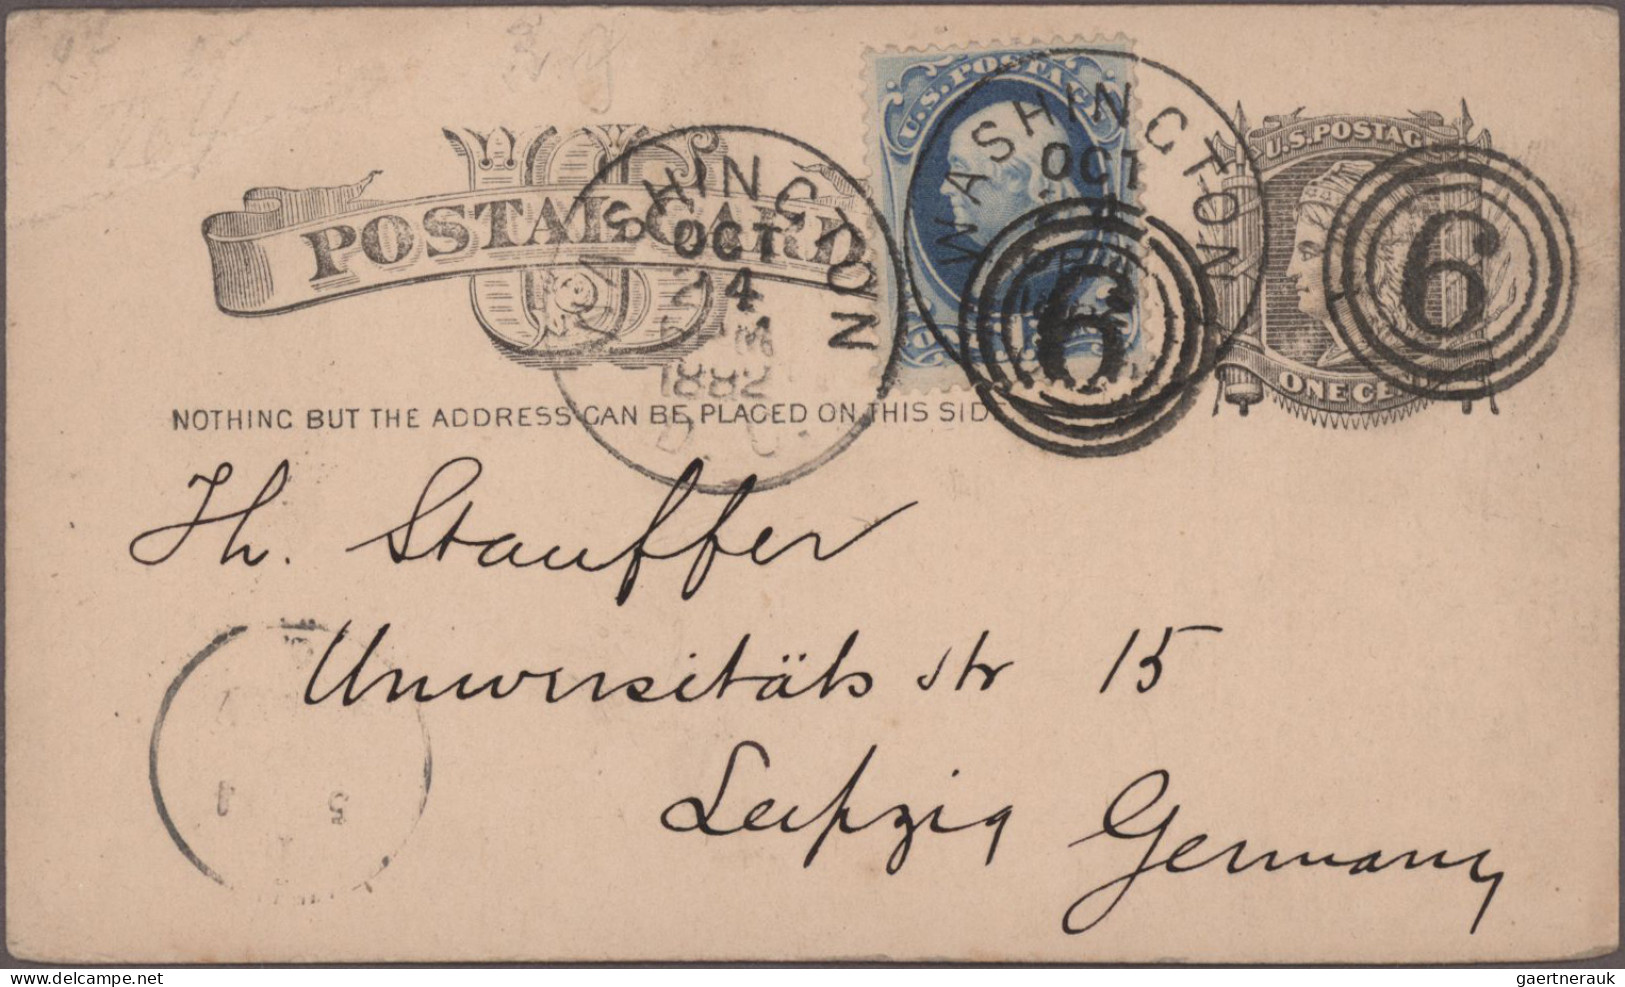 U.S. POSTAGE
U.S. POSTAG
WASHINGTON
OCT
6
6
WASHINGTON
OCT
24
1882
D.C.
POSTAL CARD
ONE CENT
NOTHING BUT THE ADDRESS CAN BE PLACED ON THIS SIDE
Th. Stauffer
Universitäts str 15
Leipzig Germany
www.delcampe.net
gaertnerauk